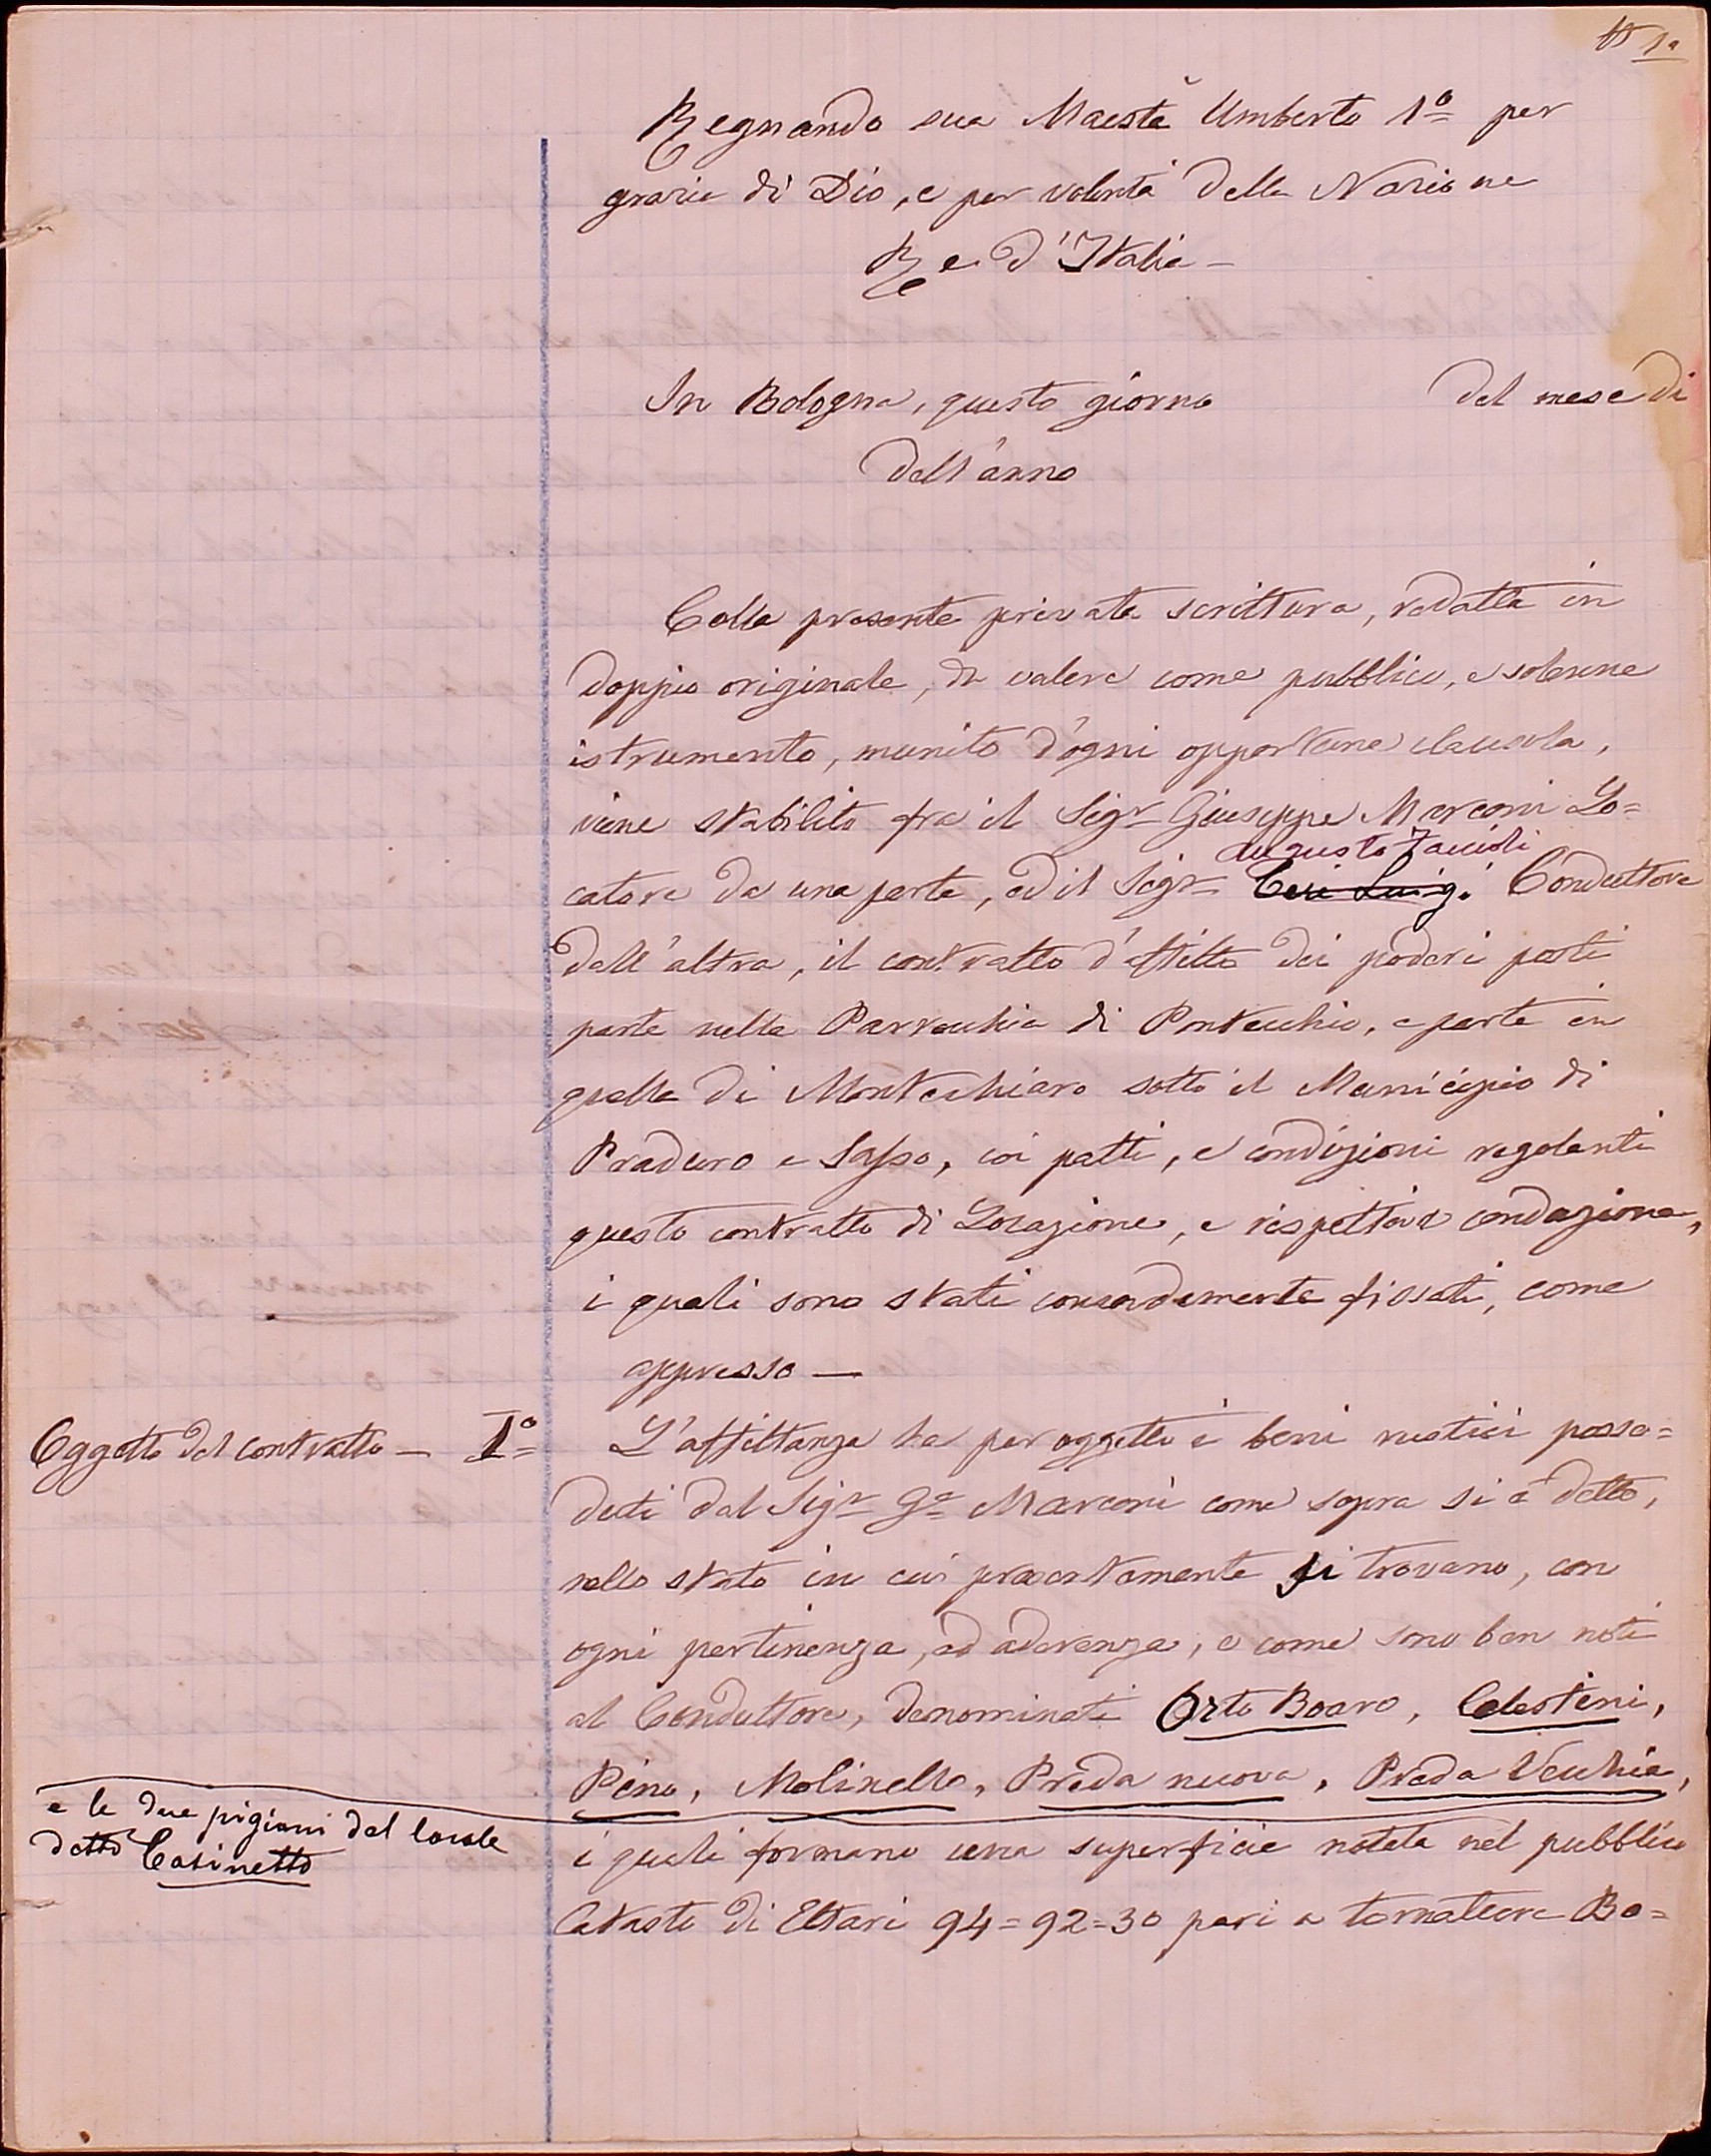 1ª
Regnando sua Maestà Umberto 1º per
grazia di Dio, e per volontà della Nazione
Re d'Italia —
In Bologna, questo giorno del mese di
dell'anno
Colla presente privata scrittura, redatta in
doppio originale, da valere come pubblico, e solenne
istrumento, munito d'ogni opportuna clausola,
viene stabilito fra il Sigr Giuseppe Marconi Lo=
Augusto Faccioli
catore da una parte, ed il Sigr Ceri Luigi Conduttore
dall'altra, il contratto d'affitto dei poderi posti
parte nella Parrocchia di Pontecchio, e parte in
quella di Montechiaro sotto il Municipio di
Praduro e Sasso, coi patti, e condizioni regolanti
questo contratto di Locazione, e rispettiva conduzione,
i quali sono stati concordemente fissati, come
appresso —
Oggetto del contratto — 1º L'affittanza ha per oggetto i beni rustici posse=
duti dal Sigr Ge Marconi come sopra si è detto,
nello stato in cui presentemente si trovano, con
ogni pertinenza, ed aderenza, e come sono ben noti
al Conduttore, denominati Orto Boaro, Celestini,
Pino, Molinello, Preda nuova, Preda Vecchia,
e le due pigioni del locale
detto Casinetto
i quali formano una superficie notata nel pubblico
Catasto di Ettari 94=92=30 pari a tornature Bo=